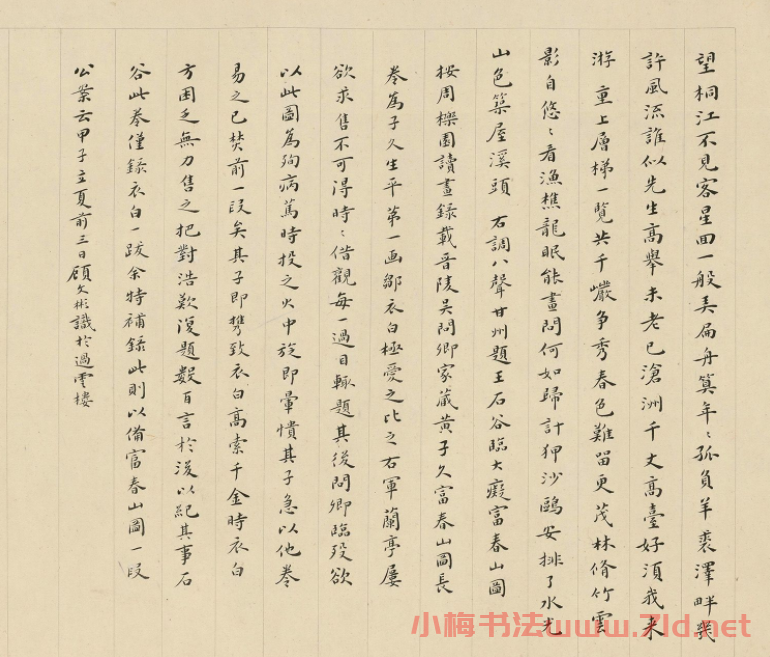 望桐江不見客星回一般美扁舟算年〻孤負羊裘澤畔幾
許風流誰似先生高舉未老已滄洲千丈高臺好須我來
游 重上層梯一覽共千巖争秀春色難留更茂林脩竹雲
影自悠〻看漁樵龍眠能畫問何如歸計狎沙鷗安排了水光
山色築屋溪頭 右調八聲甘州題王石谷臨大癡富春山圖
按周櫟園讀畫錄載晉陵吴問卿家蔵黄子久富春山圖長
卷為子久生平第一画鄒衣白極愛之比之右軍蘭亭屢
欲求售不可得時〻借觀每一過目輒題其後問卿臨殁欲
以此圖為殉病篤時投之火中旋即暈憒其子急以他卷
易之已焚前一段矣其子即携致衣白高索千金時衣白
方困乏無力售之把對浩歎復題數百言於後以紀其事石
谷此卷僅録衣白一跋余特補録此則以備富春山圖一段
公案云甲子立夏前三日顧文彬識於過雲樓
小梅书法www.7ld.net